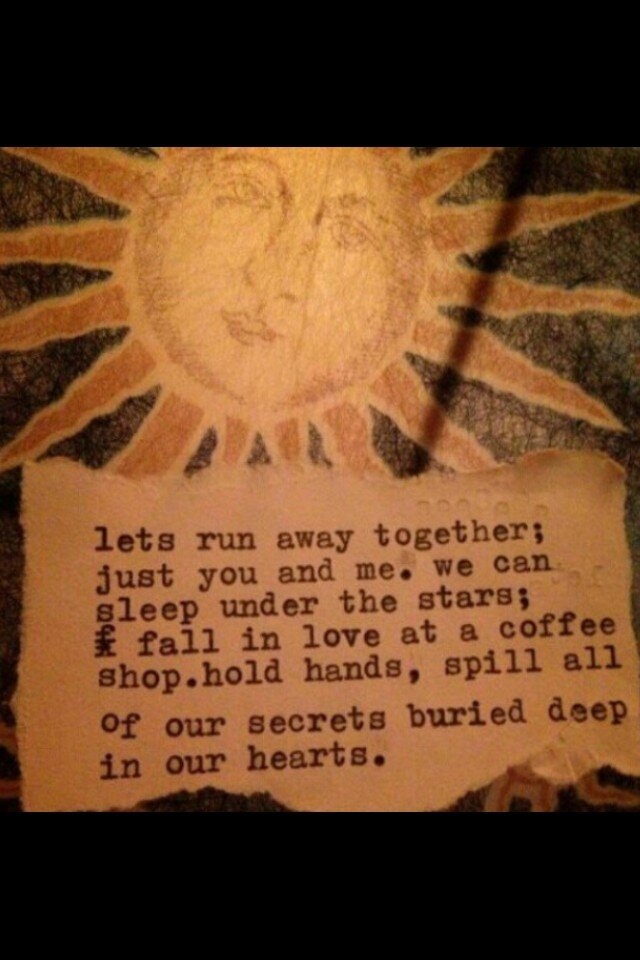 lets run away together;
just you and me. we can
sleep under the stars;
£ fall in love at a coffee
shop.hold hands, spill all
of our secrets buried deep
in our hearts.